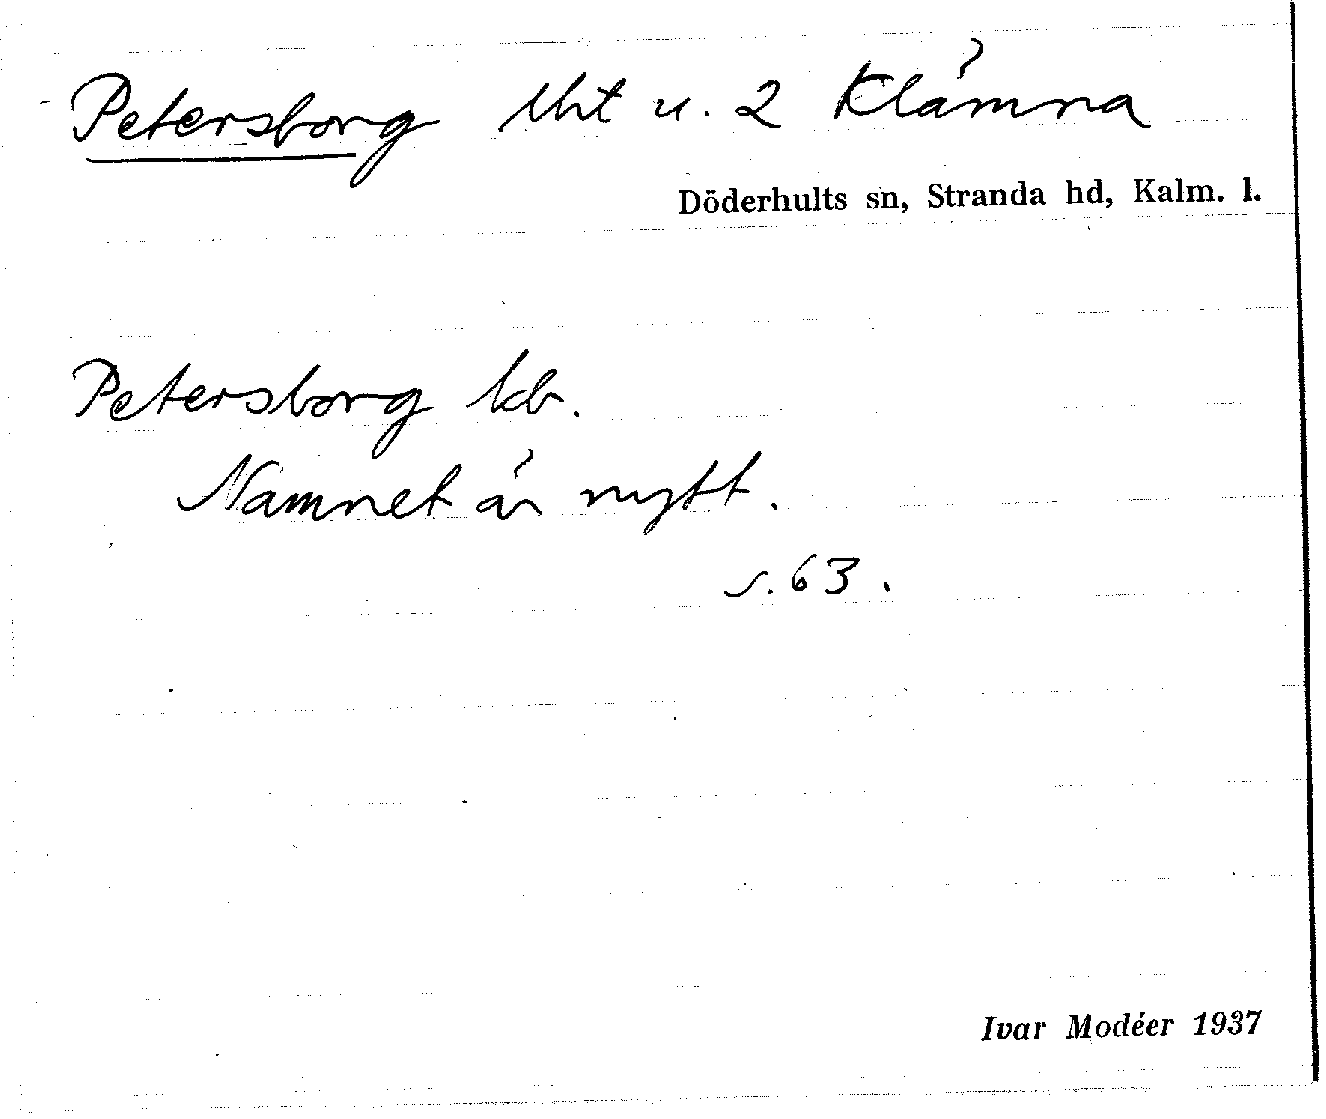 Petersborg lht u. 2 Klämna
Döderhults sn, Stranda hd, Kalm. l.
Petersborg kb.
Namnet är nytt.
s. 63.
Ivar Modéer 1937